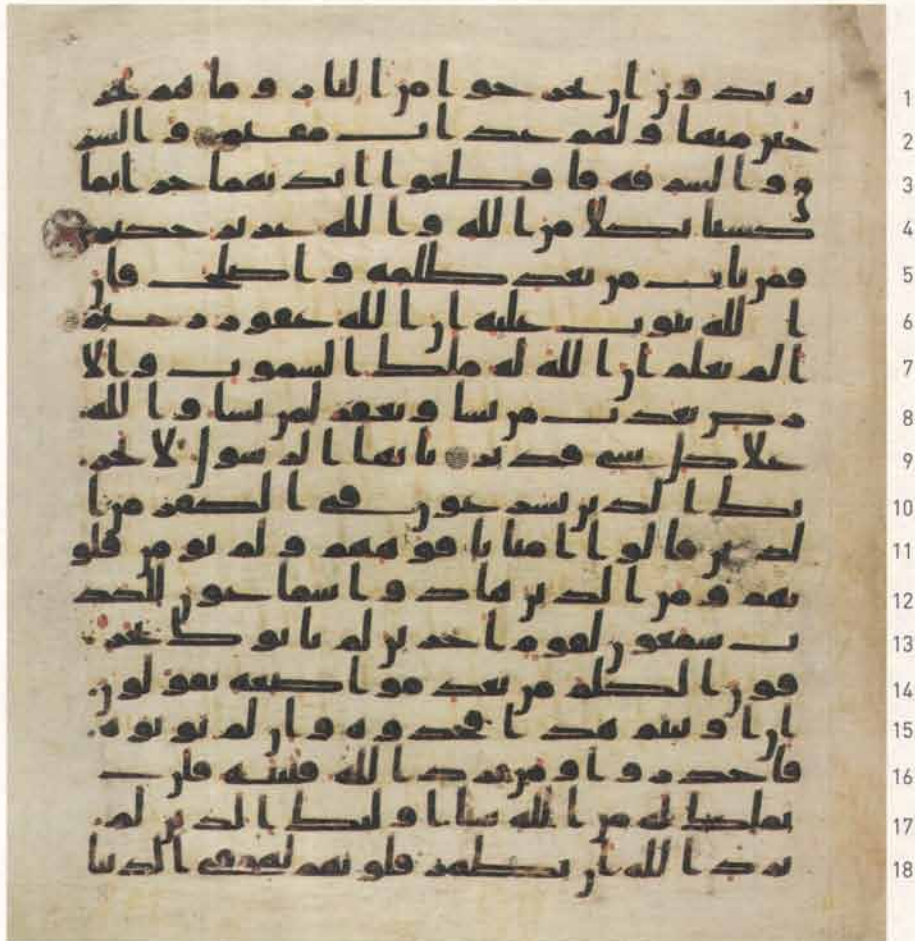 1 يريدون ان يخرجوا من النار وما هم بخر
2 جين منها ولهم عذاب مقيم والسر
3 ق والسرقة فاقطعوا ايديهما جزا بما
4 كسبا نكلا من الله والله عزيز حكيم
5 فمن تاب من بعد ظلمه واصلح فان
6 الله يتوب عليه ان الله غفور رحيم
7 الم تعلم ان الله له ملك السموت والا
8 رض يعذب من يشا ويغفر لمن يشا والله
9 على كل شي قدير يايها الرسول لا يحز
10 نك الذين يسرعون في الكفر من ا
11 لذين قالوا امنا بافوههم ولم تومن قلو
12 بهم ومن الذين هادوا سمعون للكذ
13 ب سمعون لقوم اخرين لم ياتوك يحر
14 فون الكلم من بعد موضعه يقولون
15 ان اوتيتم هذا فخذوه وان لم توتوه
16 فاحذروا ومن يرد الله فتنته فلن
17 تملك له من الله شيا اوليك الذين لم
18 يرد الله ان يطهر قلوبهم لهم في الدنيا